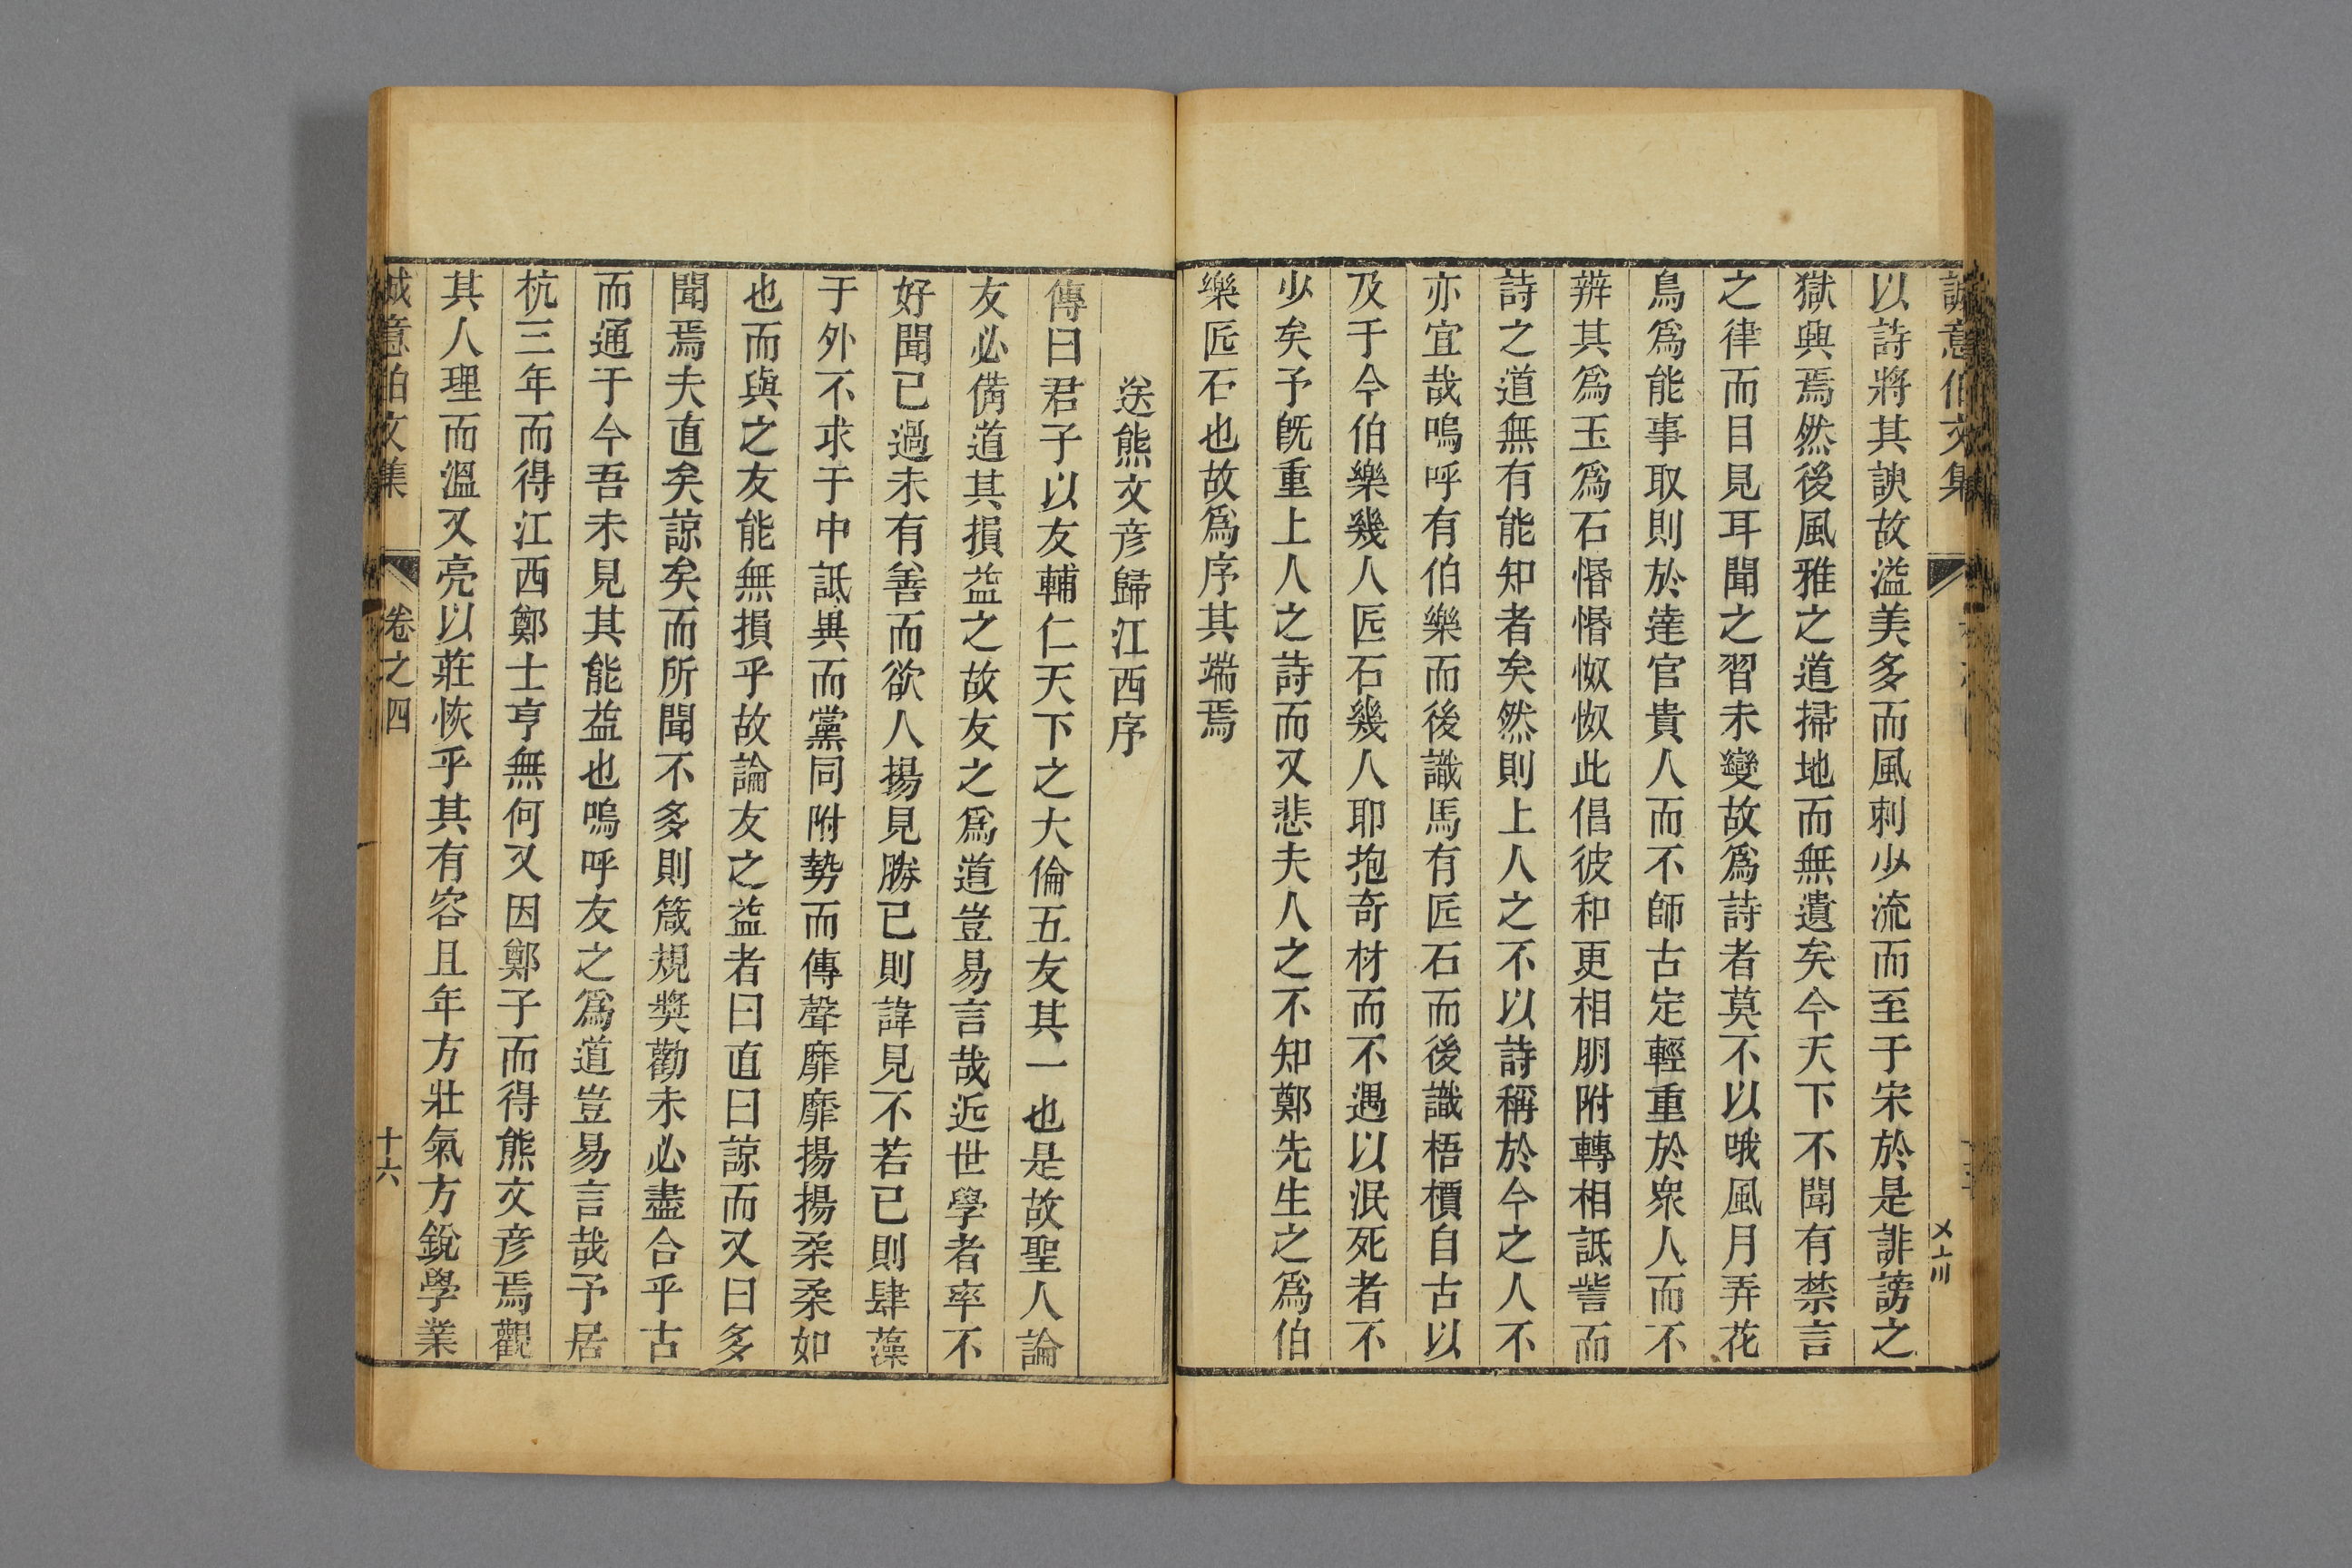 誠意伯文集
以詩將其諛故溢美多而風刺少流而至于宋於是誹謗之
獄興焉然後風雅之道掃地而無遺矣今天下不聞有禁言
之律而目見耳聞之習未變故爲詩者莫不以哦風月弄花
鳥爲能事取則於達官貴人而不師古定輕重於衆人而不
辨其爲玉爲石惛惛怓怓此倡彼和更相朋附轉相詆訾而
詩之道無有能知者矣然則上人之不以詩稱於今之人不
亦宜哉嗚呼有伯樂而後識馬有匠石而後識梧檟自古以
及于今伯樂幾人匠石幾人耶抱奇材而不遇以泯死者不
少矣予旣重上人之詩而又悲夫人之不知鄭先生之爲伯
樂匠石也故爲序其端焉
送熊文彦歸江西序
傳曰君子以友輔仁天下之大倫五友其一也是故聖人論
友必僃道其損益之故友之爲道豈易言哉近世學者率不
好聞已過未有善而欲人揚見勝已則諱見不若已則肆藻
于外不求于中詆異而黨同附勢而傳聲靡靡揚揚柔柔如
也而與之友能無損乎故論友之益者曰直曰諒而又曰多
聞焉夫直矣諒矣而所聞不多則箴規奬勸未必盡合乎古
而通于今吾未見其能益也嗚呼友之爲道豈易言哉予居
杭三年而得江西鄭士亨無何又因鄭子而得熊文彦焉觀
其人理而溫又亮以莊恢乎其有容且年方壯氣方銳學業
誠意伯文集 卷之四 十六